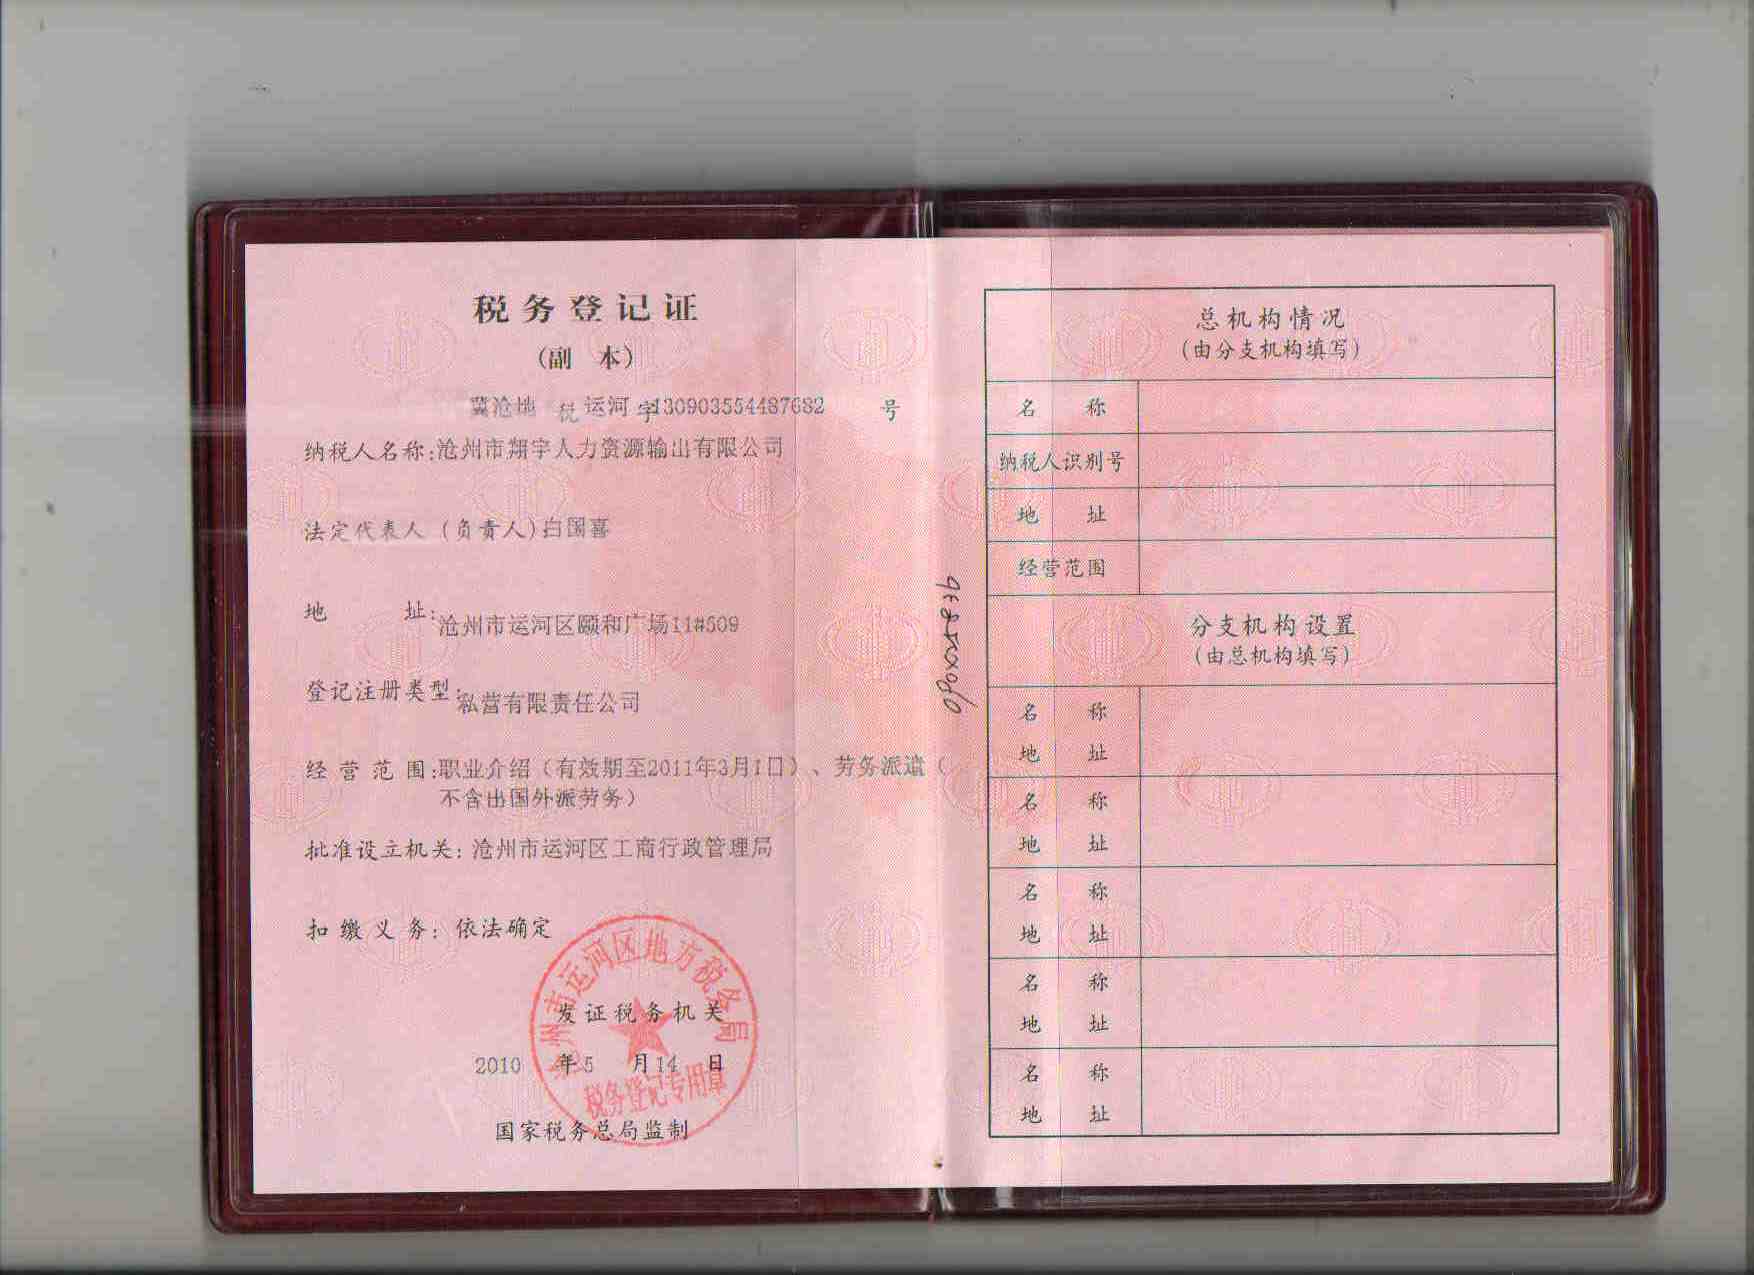 税务登记证
(副 本)
冀沧地 税 运河 字130903554487682 号
纳税人名称:沧州市翔宇人力资源输出有限公司
法定代表人(负责人)白国喜
地 址:沧州市运河区颐和广场11#509
登记注册类型:私营有限责任公司
经营范围:职业介绍(有效期至2011年3月1日)、劳务派遣(
不含出国外派劳务)
批准设立机关:沧州市运河区工商行政管理局
扣缴义务:依法确定
沧州市运河区地方税务局
发证税务机关
2010 年5 月14 日
税务登记专用章
国家税务总局监制
总机构情况
(由分支机构填写)
名 称
纳税人识别号
地 址
经营范围
分支机构设置
(由总机构填写)
名 称
地 址
名 称
地 址
名 称
地 址
名 称
地 址
名 称
地 址